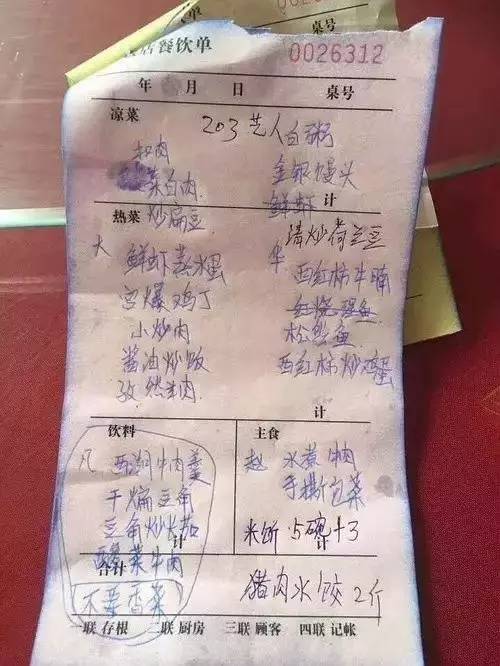 店餐饮单 0026312
年 月 日 桌号
凉菜 203 艺人白粥
扣肉 金银馒头
菜白肉 鲜虾 计
热菜 炒扁豆 清炒荷兰豆
大 鲜虾蒸水蛋 华 西红柿牛腩
宫爆鸡丁 红烧
小炒肉 松鱼
酱油炒饭 西红柿炒鸡蛋
孜然羊肉 计
饮料 主食
凡 西湖牛肉羹 赵 水煮牛肉
干煸豆角 手撕包菜
豆角炒茄 计 米饭 5碗+3 计
酸菜牛肉
合计 猪肉水饺 2斤
不要香菜
一联 存根 二联 厨房 三联 顾客 四联 记帐